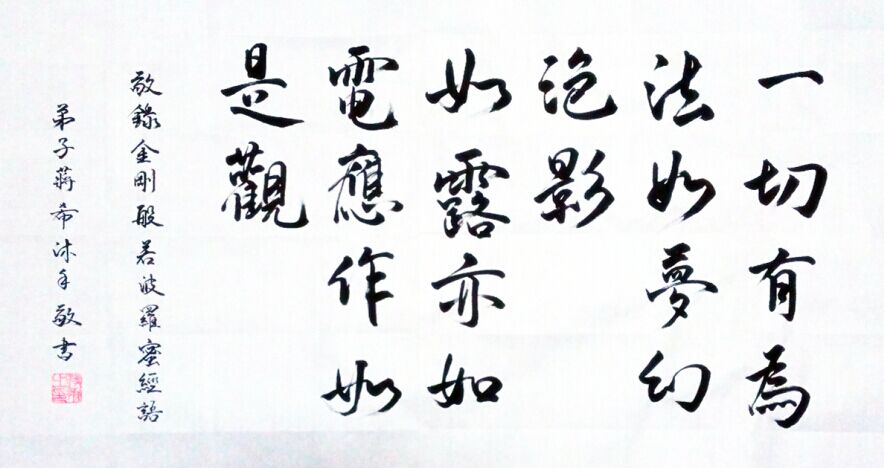 一切有為
法如夢幻
泡影
如露亦如
電應作如
是觀
敬錄金剛般若波羅蜜經語
弟子蔣希沐手敬書